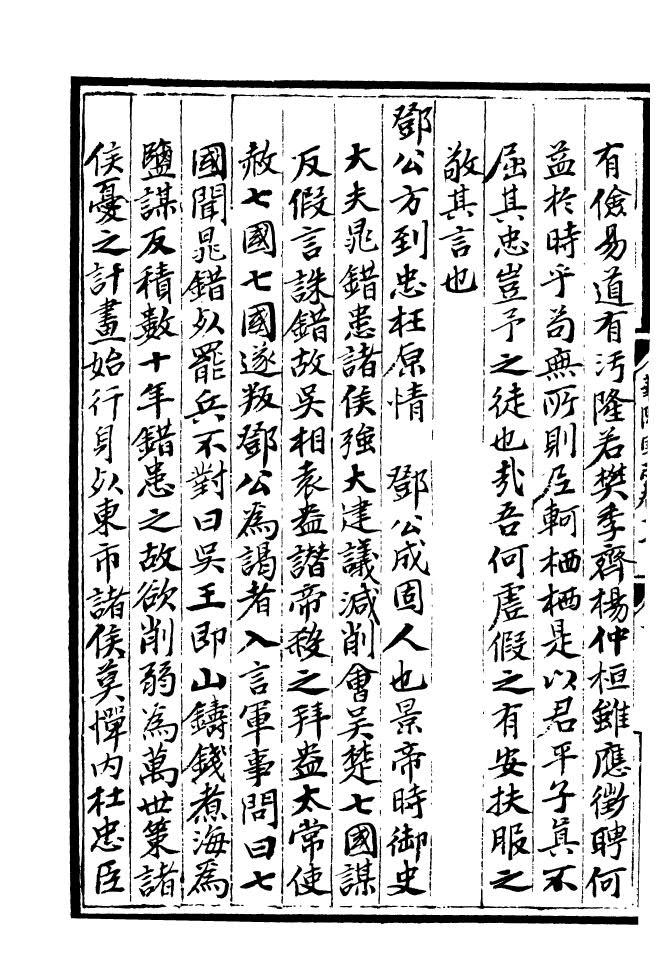 有儉易道有汚隆若樊季齊楊仲桓雖應徵聘何
益於時乎苟無所則尼軻栖栖是以君平子真不
屈其忠豈予之徒也哉吾何虛假之有安扶服之
敬其言也
鄧公方到忠枉原情　鄧公成固人也景帝時御史
大夫晁錯患諸侯強大建議減削會吳楚七國謀
反假言誅錯故吳相袁盎譖帝殺之拜盎太常使
赦七國七國遂叛鄧公為謁者入言軍事問曰七
國聞晁錯死罷兵不對曰吳王即山鑄錢煮海為
鹽謀反積數十年錯患之故欲削弱為萬世策諸
侯憂之計畫始行身死東市諸侯莫憚內杜忠臣